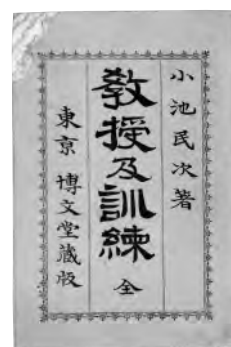 小池民次著
教授及訓練 全
東京 博文堂蔵版